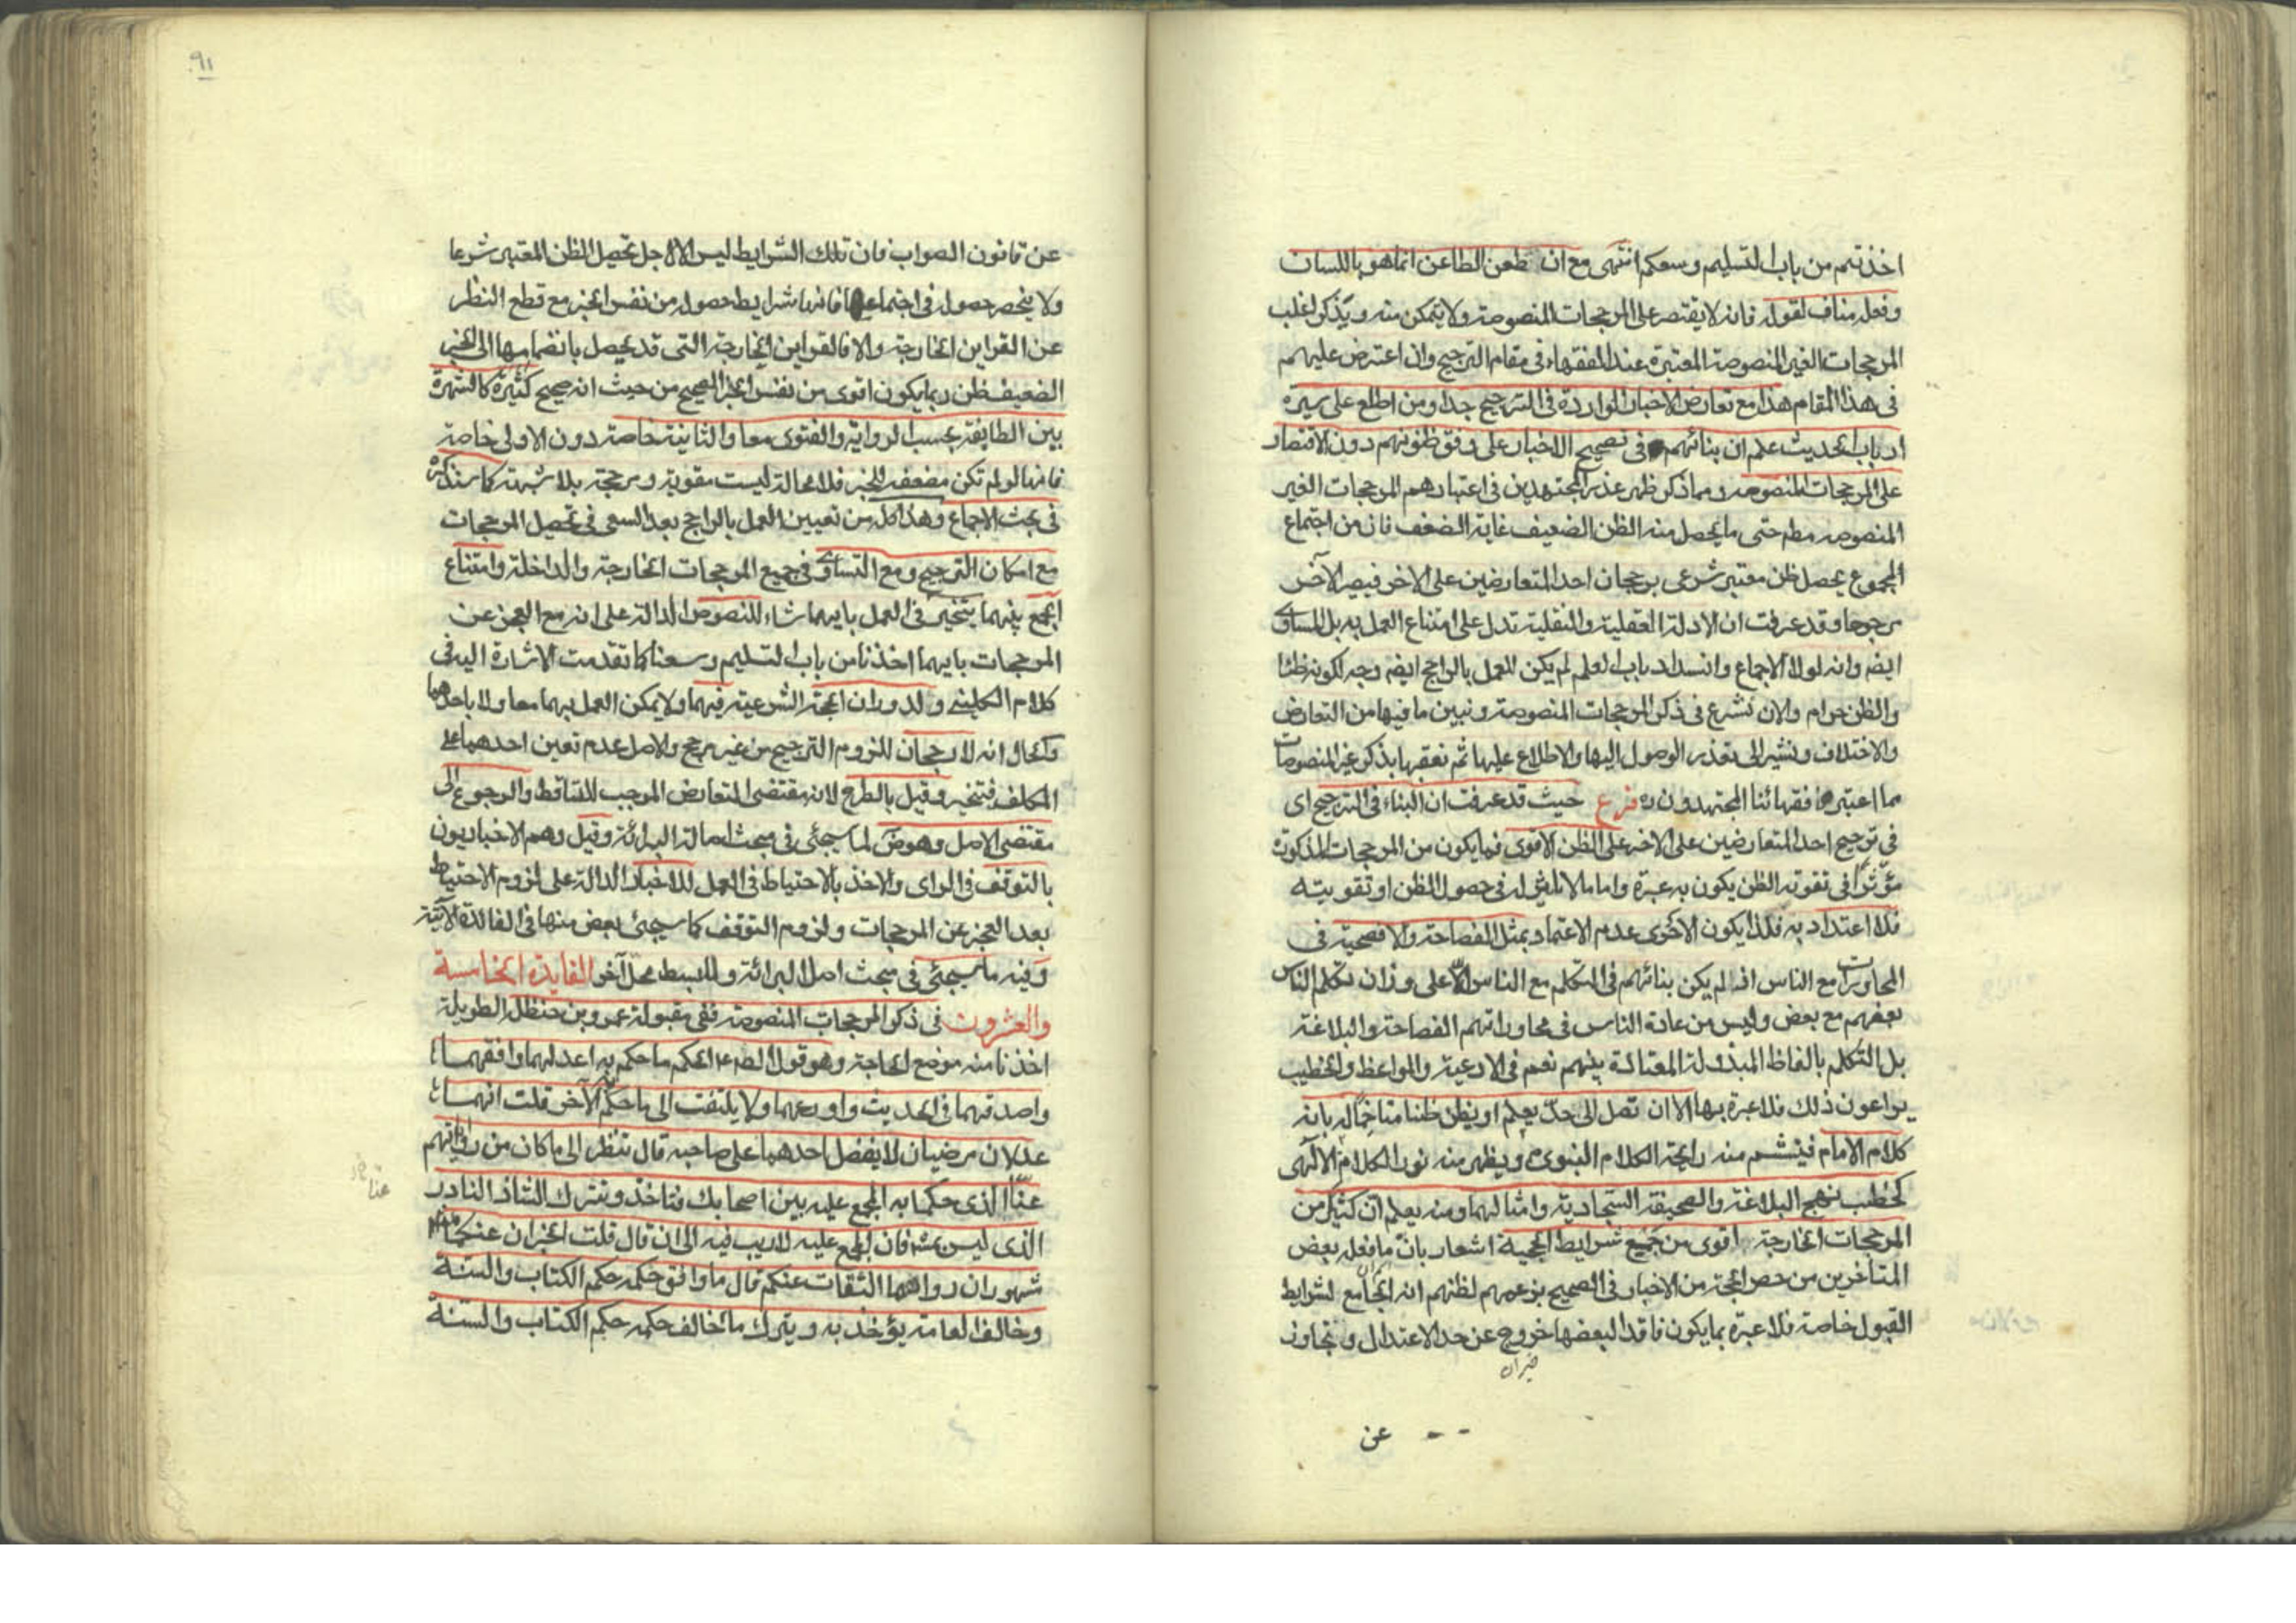 اخذتم من باب التسليم وسعكم انتهى مع ان طعن الطاعن انما هو باللسان
وفعله مناف لقوله فانه لا يقتصر على المرجحات المنصوصة ولا يتمكن منه ويذكر اغلب
المرجحات الغير المنصوصة المعتبرة عند الفقهاء في مقام الترجيح وان اعترض عليهم
في هذا المقام هذا مع تعارض الاخبار الواردة في الترجيح جدا ومن اطلع على سيرة
ارباب الحديث علم ان بنائهم في تصحيح الاخبار على وفق ظنونهم دون الاقتصار
على المرجحات المنصوصه ومما ذكر ظهر عذر المجتهدين في اعتبارهم المرجحات الغير
المنصوصه مطم حتى ما يحصل منه الظن الضعيف غاية الضعف فان من اجتماع
المجموع يحصل ظن معتبر شرعى برجحان احد المتعارضين على الاخر فيصير الآخر
مرجوحا وقد عرفت ان الادلة العقلية والنقلية تدل على امتناع العمل به بل المساوى
ايضه وانه لولا الاجماع وانسداد باب العلم لم يكن للعمل بالراجح ايضه وجه لكونه ظنا
والظن حرام والان نشرع في ذكر المرجحات المنصوصة ونبين ما فيها من التعارض
والاختلاف ونشير الى تعذر الوصول اليها والاطلاع عليها ثم نعقبها بذكر غير المنصوصات
مما اعتبرها فقهائنا المجتهدون ره فرع حيث قد عرفت ان البناء في الترجيح اى
في ترجيح احد المتعارضين على الاخر على الظن الاقوى فما يكون من المرجحات المذكورة
مؤثرا في تقوية الظن يكون به عبرة واما ما لا تاثير له في حصول الظن او تقويته
فلا اعتداد به فلذا يكون الاحرى عدم الاعتماد بمثل الفصاحة والافصحية في
المحاورات مع الناس اذ لم يكن بنائهم في التكلم مع الناس الا على وزان تكلم الناس
بعضهم مع بعض وليس من عادة الناس في محاوراتهم الفصاحة والبلاغة
بل التكلم بالفاظ المبذولة المعتادة بينهم نعم في الادعية والمواعظ والخطب
يراعون ذلك فلا عبرة بها الا ان تصل الى حد يعلم او يظن ظنا متاخما له بانه
كلام الامام فيشم منه رايحة الكلام النبوى ويظهر منه نور الكلام الالهى
كخطب نهج البلاغة والصحيفة السجادية وامثالهما ومنه يعلم ان كثيرا من
المرجحات الخارجة اقوى من جميع شرايط الحجية اشعار بان ما فعله بعض
المتاخرين من حصر الحجة من الاخبار في الصحيح بزعمهم لظنهم انه الجامع لشرايط
القبول خاصة فلا عبرة بما يكون فاقدا لبعضها خروج عن حد الاعتدال وتجاوز
عن
عن قانون الصواب فان تلك الشرايط ليس الا لاجل تحصيل الظن المعتبر شرعا
ولا ينحصر حصوله في اجتماعها فانها شرايط حصوله من نفس الخبر مع قطع النظر
عن القراين الخارجة والا فالقراين الخارجة التى قد يحصل بانضمامها الى الخبر
الضعيف ظن ربما يكون اقوى من نفس الخبر الصحيح من حيث انه صحيح كثيرة كالشهرة
بين الطايفة بحسب الرواية والفتوى معا والثانية خاصة دون الاولى خاصة
فانها لو لم تكن مضعفه للخبر فلا محالة ليست مقوية ومرجحة بلا شبهة كما سنذكره
في بحث الاجماع وهذا كله من تعيين العمل بالراجح بعد السعى في تحصيل المرجحات
مع امكان الترجيح ومع التساوى في جميع المرجحات الخارجة والداخلة وامتناع
الجمع بينهما يتخير في العمل بايهما شاء للنصوص الدالة على انه مع العجز عن
المرجحات بايهما اخذنا من باب التسليم وسعنا كما تقدمت الاشارة اليه في
كلام الكلينى ولدوران الحجة الشرعية فيهما ولا يمكن العمل بهما معا ولا باحدهما
والحال انه لا رجحان للزوم الترجيح من غير مرجح والاصل عدم تعين احدهما على
المكلف فتخير وقيل بالطرح لانه مقتضى التعارض الموجب للتساقط والرجوع الى
مقتضى الاصل وهو ض لما سيجئ في مبحث اصالة البرائة وقيل وهم الاخباريون
بالتوقف في الراى والاخذ بالاحتياط في العمل للاخبار الدالة على لزوم الاحتياط
بعد العجز عن المرجحات ولزوم التوقف كما سيجئ بعض منها في الفائدة الآتية
وفيه ما سيجئ في مبحث اصل البرائة وللبسط محل آخر الفايدة الخامسة
والعشرون في ذكر المرجحات المنصوصة ففى مقبولة عمر وبن حنظله الطويلة
اخذنا منه موضع الحاجة وهو قول الصه ع الحكم ما حكم به اعدلهما وافقههما
واصدقهما في الحديث واورعهما ولا يلتفت الى ما حكم به الآخر قلت انهما
عدلان مرضيان لا يفضل احدهما على صاحبه قال تنظر الى ما كان من رواياتهم
عنا الذى حكما به المجمع عليه بين اصحابك فتاخذ وتترك الشاذ النادر
الذى ليس بمش فان المجمع عليه لا ريب فيه الى ان قال قلت الخبران عنكما
شهوران رواهما الثقات عنكم قال ما وافق حكمه حكم الكتاب والسنة
وخالف العامة يؤخذ به ويترك ما خالف حكمه حكم الكتاب والسنة
٩١